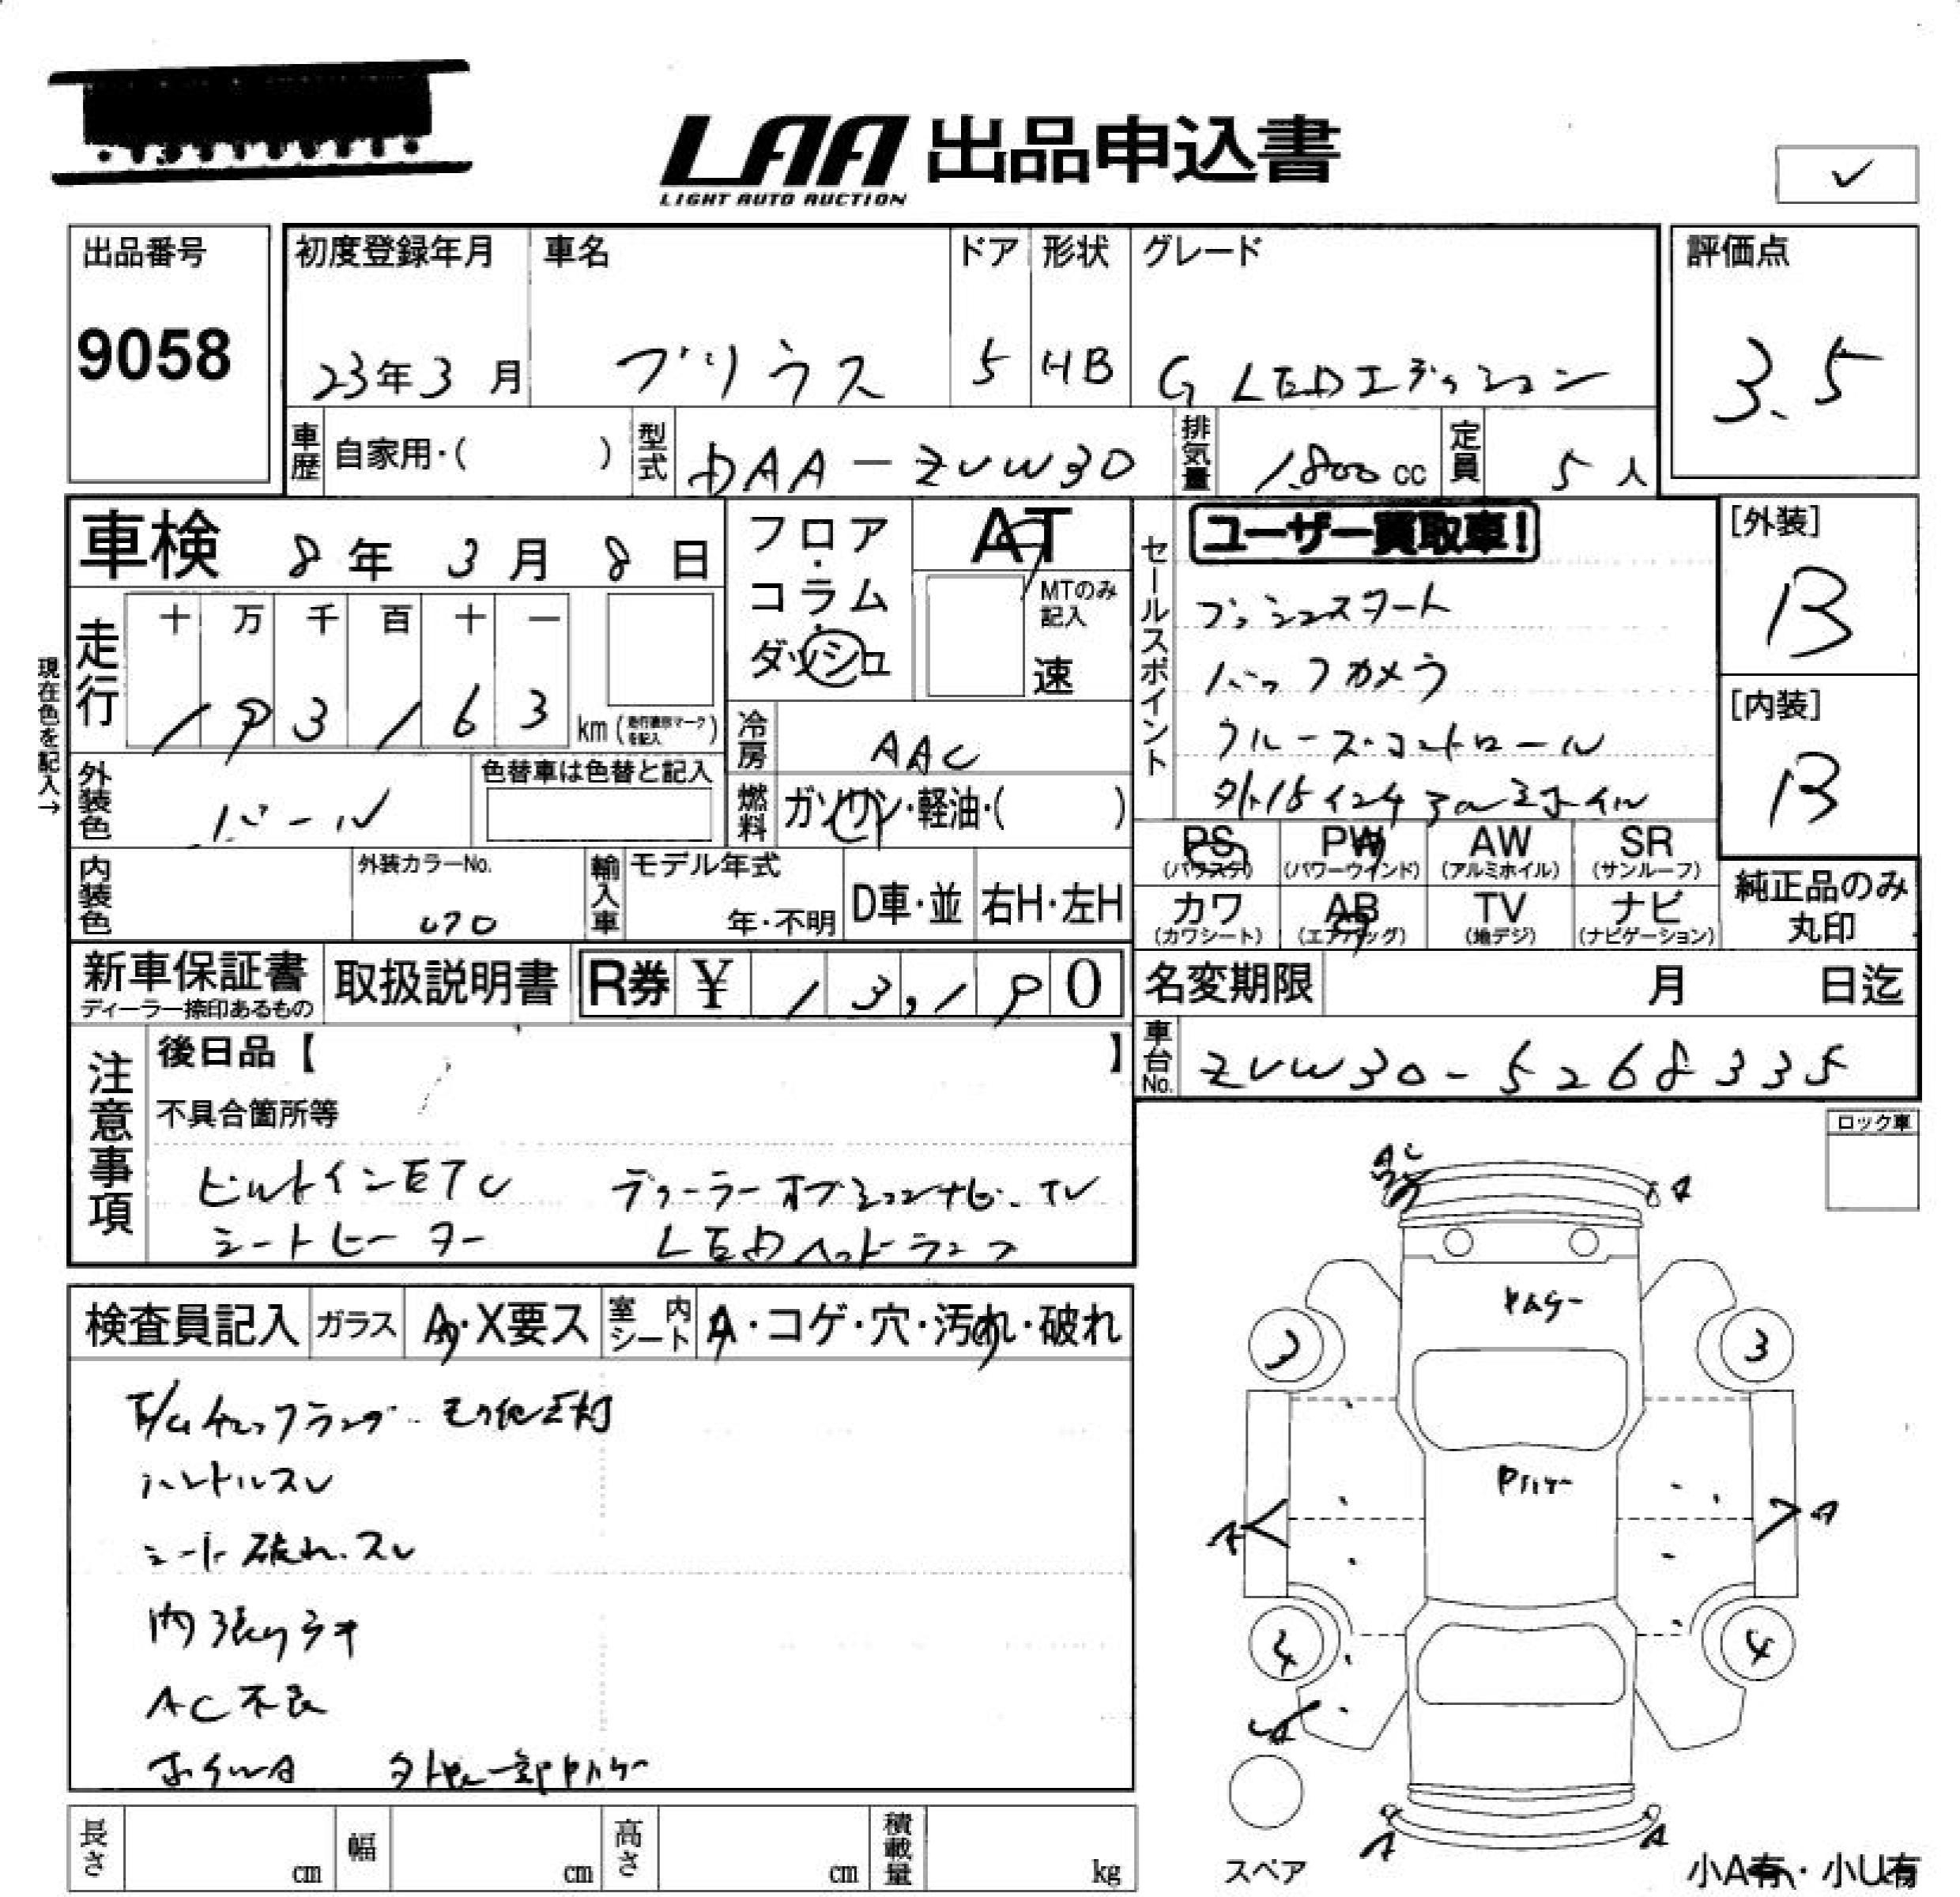 LAA 出品申込書
LIGHT AUTO AUCTION
✓
出品番号
9058
初度登録年月
23年3月
車名
プリウス
ドア
5
形状
HB
グレード
G LEDエディション
評価点
3.5
車歴
自家用・(　　)
型式
DAA-ZVW30
排気量
1800cc
定員
5人
車検 8年3月8日
フロア・コラム・ダッシュ
AT
MTのみ記入
速
セールスポイント
ユーザー買取車!
プッシュスタート
バックカメラ
クルーズ・コントロール
[外装]
B
[内装]
B
現在色を記入→
走行
十 万 千 百 十 一
1 9 3 1 6 3
km
冷房
AAC
外装色
パール
色替車は色替と記入
燃料
ガソリン・軽油・(　　)
PS
(パワステ)
PW
(パワーウインド)
AW
(アルミホイル)
SR
(サンルーフ)
カワ
(カワシート)
AB
(エアバッグ)
TV
(地デジ)
ナビ
(ナビゲーション)
純正品のみ
丸印
内装色
外装カラーNo.
070
輸入車
モデル年式
年・不明
D車・並
右H・左H
新車保証書
ディーラー捺印あるもの
取扱説明書
R券 ¥ 13,190
名変期限
月　日迄
車台No.
ZVW30-5268335
注意事項
後日品【　　】
不具合箇所等
ビルトインETC ディーラーオプションナビ・TV
シートヒーター LEDヘッドランプ
ロック車
検査員記入
ガラス
A・X要ス
室内シート
A・コゲ・穴・汚れ・破れ
ハンドルスレ
シート破れ、スレ
内張りキズ
AC不良
ホイールA
A
A
3
3
A
A
4
4
A
A
スペア
長さ
cm
幅
cm
高さ
cm
積載量
kg
小A有・小U有